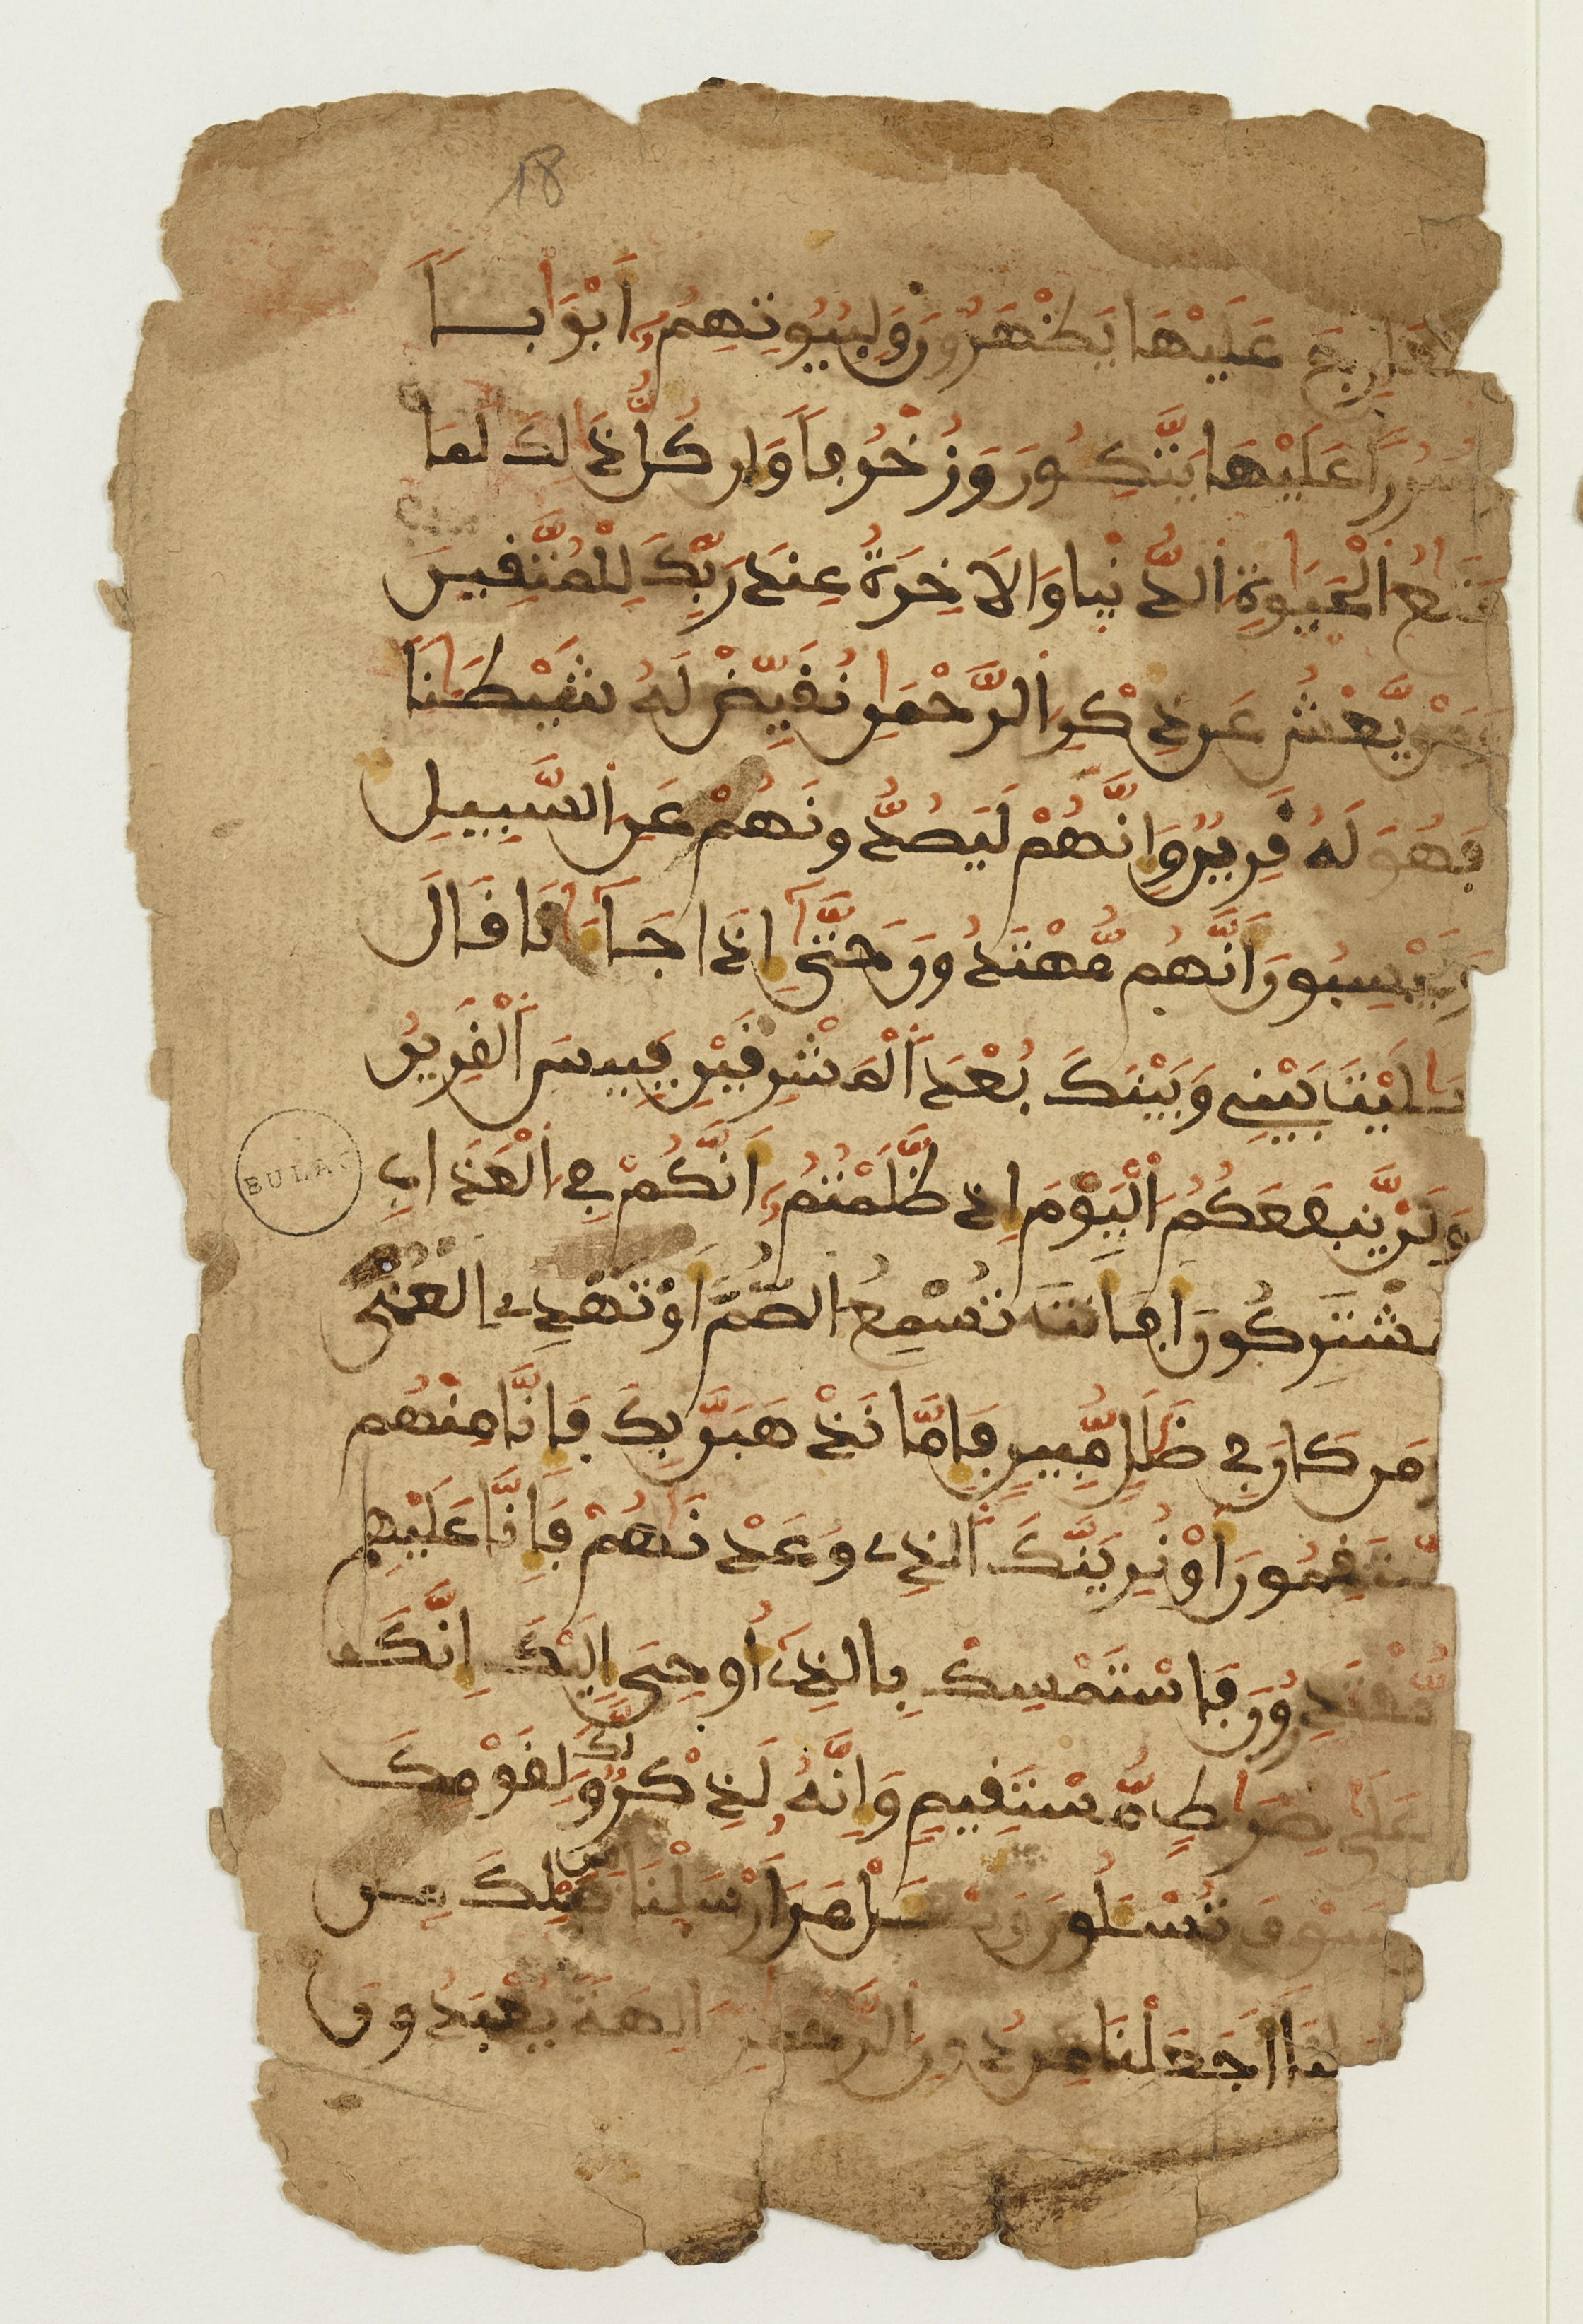 18
مَعَارِجَ عَلَيْهَا يَظْهَرُونَ وَلِبُيُوتِهِمُۥ أَبْوَٰبًا
وَسُرُرًا عَلَيْهَا يَتَّكُونَ وَزُخْرُفًا وَإِن كُلُّ ذَٰلِكَ لَمَا
مَتَٰعُ ٱلْحَيَوٰةِ ٱلدُّنْيَا وَالَاخِرَةُ عِندَ رَبِّكَ لِلْمُتَّقِينَ
وَمَنْ يَّعْشُ عَن ذِكْرِ ٱلرَّحْمَٰنِ نُقَيِّضْ لَهُ شَيْطَٰنًا
فَهُوَ لَهُ قَرِينٌ وَإِنَّهُمْ لَيَصُدُّونَهُمْ عَنِ ٱلسَّبِيلِ
وَيَحْسِبُونَ أَنَّهُم مُّهْتَدُونَ حَتَّىٰ إِذَا جَآءَٰنَا قَالَ
يَٰلَيْتَ بَيْنِي وَبَيْنَكَ بُعْدَ ٱلْمَشْرِقَيْنِ فَبِيسَ ٱلْقَرِينُ
وَلَنْ يَّنفَعَكُمُ ٱلْيَوْمَ إِذ ظَّلَمْتُمُۥ أَنَّكُمْ فِي ٱلْعَذَابِ
مُشْتَرِكُونَ أَفَأَنتَ تُسْمِعُ ٱلصُّمَّ أَوْ تَهْدِي ٱلْعُمْيَ
وَمَن كَانَ فِي ضَلَٰلٍ مُّبِينٍ فَإِمَّا نَذْهَبَنَّ بِكَ فَإِنَّا مِنْهُم
مُّنتَقِمُونَ أَوْ نُرِيَنَّكَ ٱلَّذِي وَعَدْنَٰهُمْ فَإِنَّا عَلَيْهِم
مُّقْتَدِرُونَ فَاسْتَمْسِكْ بِالَّذِي أُوحِيَ إِلَيْكَ إِنَّكَ
عَلَىٰ صِرَٰطٍ مُّسْتَقِيمٍ وَإِنَّهُ لَذِكْرٌ لَّكَ وَلِقَوْمِكَ
وَسَوْفَ تُسْـَٔلُونَ وَسْـَٔلْ مَنَ ارْسَلْنَا مِن قَبْلِكَ مِن
رُّسُلِنَا أَجَعَلْنَا مِن دُونِ ٱلرَّحْمَٰنِ ءَالِهَةً يُعْبَدُونَ
BULAC